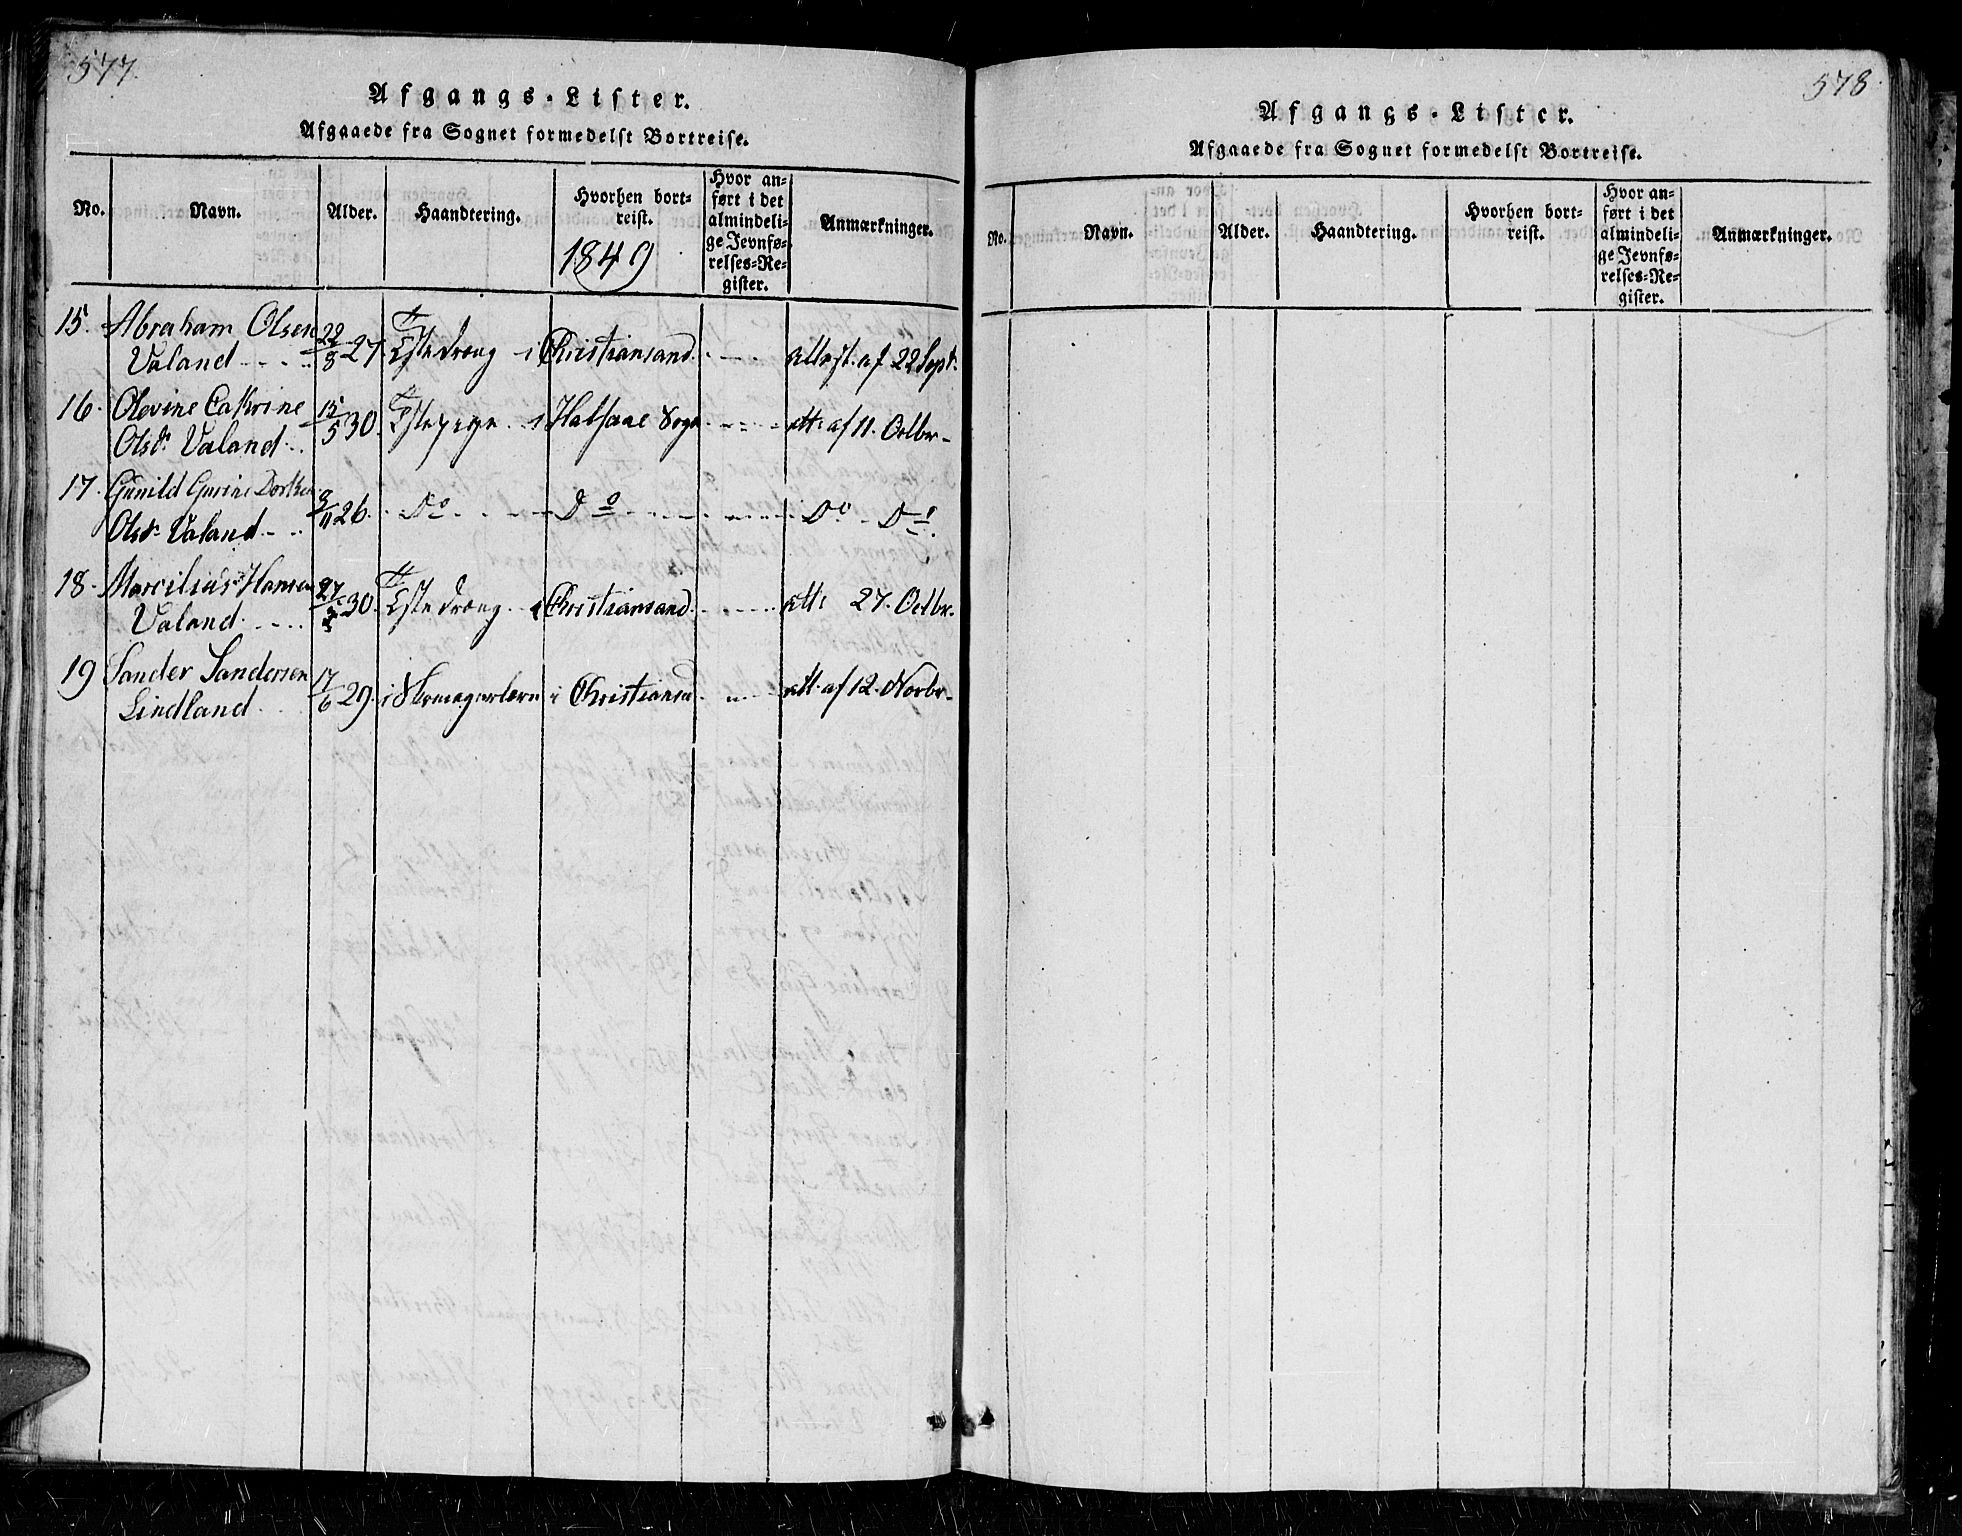 577.
Afgangs-Lister.
Afgaaede fra Sognet formedelst Bortreise.
No. Navn. Alder. Haandtering. Hvorhen bortreist. Hvor anført i det almindelige Jevnførelses-Register. Anmærkninger.
1849
15. Abraham Olsen 22/8 27. Tjstedreng i Christiansand. attest. af 22 Sept.
Valand
16. Olevine Cathrine 15/5 30. Tjstepige i Halsaae Sogn att: af 11. Octbr
Olsd. Valand
17. Gunild Gurine 9/11 26. Do Do Do Do
Olsd. Valand
18. Marcilius Hansen 27/ 30. Tjstedreng i Christiansand. att: 27. Octbr.
Valand
19 Sander Sandersen 17/6 29. i Skomagerlære i Christiansd att. af 12. Novbr
Lindland
578.
Afgangs-Lister.
Afgaaede fra Sognet formedelst Bortreise.
No. Navn. Alder. Haandtering. Hvorhen bortreist. Hvor anført i det almindelige Jevnførelses-Register. Anmærkninger.